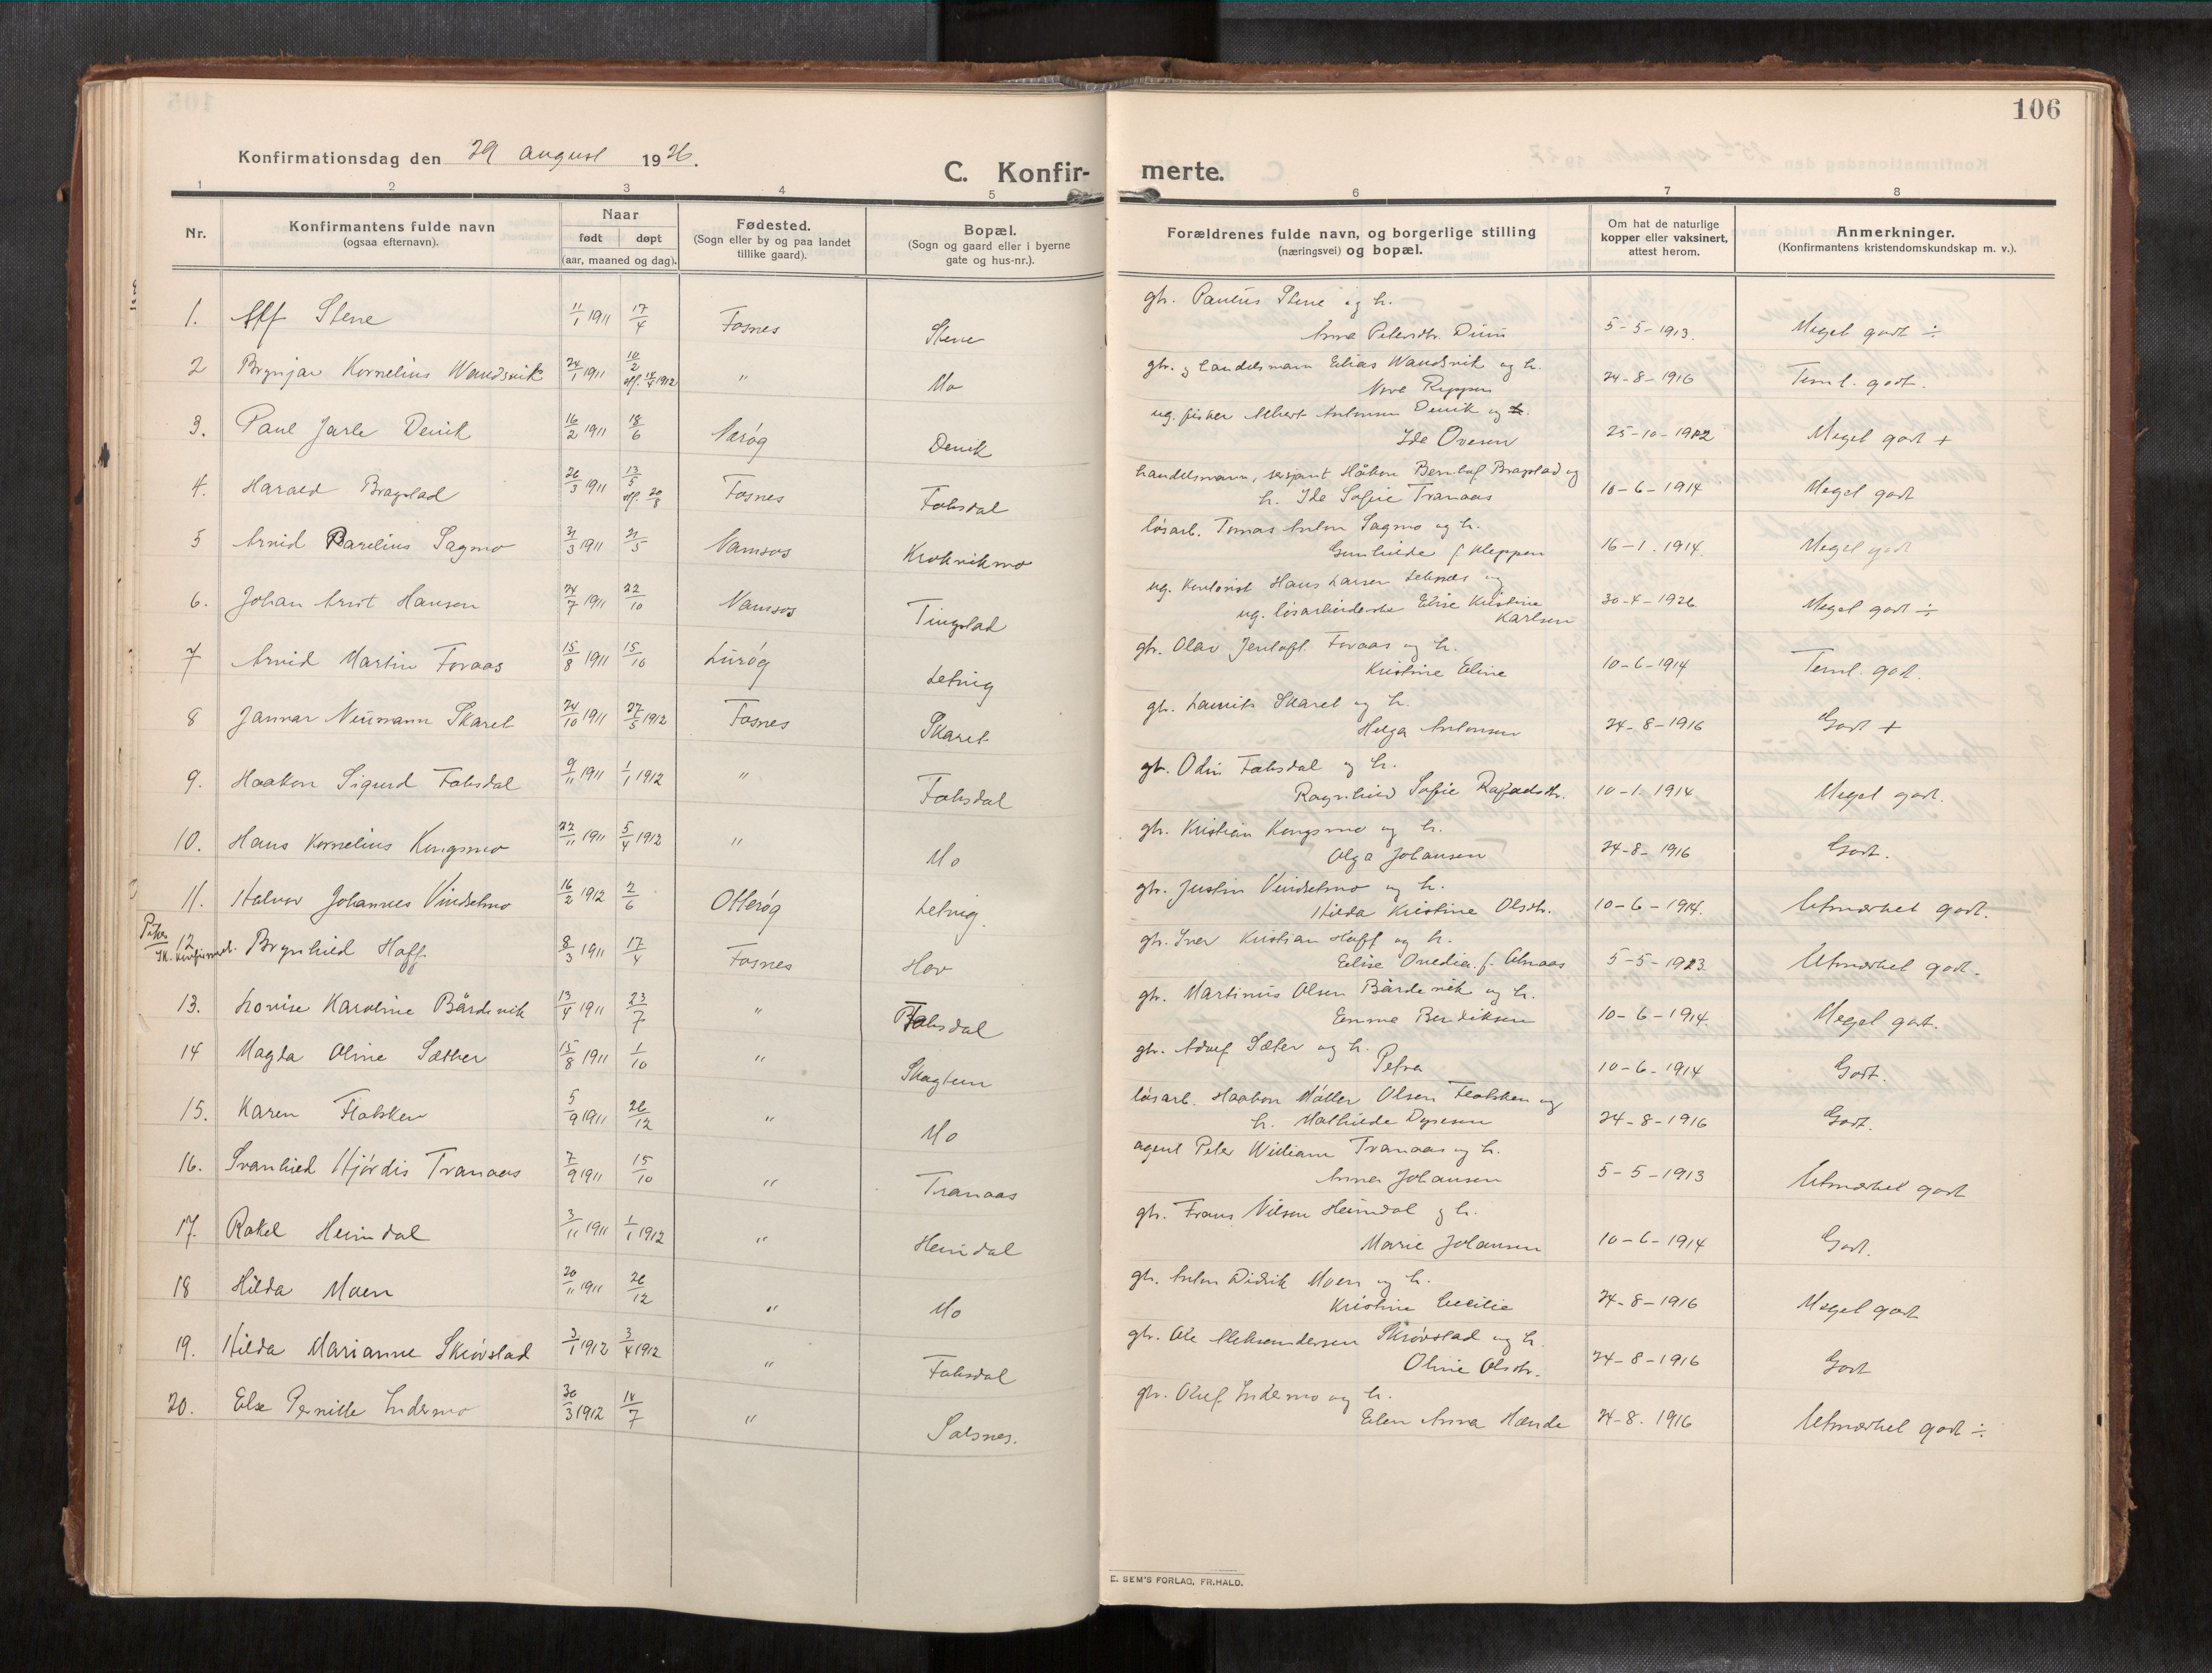 106
Konfirmationsdag den 29 august 1926.
C. Konfir-
merte.
1 2 3 4 5 6 7 8
Nr.
Konfirmantens fulde navn
(ogsaa efternavn).
Naar
født døpt
(aar, maaned og dag).
Fødested.
(Sogn eller by og paa landet
tillike gaard).
Bopæl.
(Sogn og gaard eller i byerne
gate og hus-nr.).
Forældrenes fulde navn, og borgerlige stilling
(næringsvei) og bopæl.
Om hat de naturlige
kopper eller vaksinert,
attest herom.
Anmerkninger.
(Konfirmantens kristendomskundskap m. v.).
1. Alf Stene 11/1 1911 17/4 Fosnes Stene gbr. Paulus Stene og h.
Anna Petersdtr. Duun 5-5-1913. Meget godt ÷
2 Brynjar Kornelius Wandsvik 24/1 1911 10/2 Mo gbr. og handelsmann Elias Wandsvik og h.
" 24-8-1916 Teml. godt.
3. Paul Jarle Devik 16/2 1911 18/6 Nærøy Devik ug. fisker Albert Antonsen Devik og h.
Ida Ovesen 25-10-1912 Meget godt +
4. Harald Bragstad 26/3 1911 13/5 Fosnes Faksdal handelsmann, sersjant Håkon Berntof Bragstad og
h. Ida Sofie Tranaas 10-6-1914 Meget godt
5 Arvid Parelius Sagmo 31/3 1911 21/5 Namsos Krokvikmo løsarb. Tomas Anton Sagmo og h.
Gunhilde f. Kleppen 16-1.1914. Meget godt
6. Johan Arnt Hansen 24/7 1911 22/10 Namsos Tingstad ug. Kontorist Hans Larsen Leknæs og
ug. løsarbeiderske Elise Kristine
Karlsen 30-4-1926 Meget godt ÷
7 Arvid Martin Foraas 15/8 1911 15/10 Lurøy Letnig gbr. Olav Jentoft Foraas og h.
Kristine Eline 10-6-1914 Teml. godt.
8 Jannar Neumann Skaret 24/10 1911 27/5 1912 Fosnes Skaret gbr. Laurits Skaret og h.
Helga Antonsen 24-8-1916 Godt +
9. Haakon Sigurd Faksdal 9/11 1911 1/1 1912 " Faksdal gbr. Odin Faksdal og h.
Ragnhild Sofie 10-1.1914 Meget godt.
10. Hans Kornelius Kongsmo 22/11 1911 5/4 1912 " Mo gbr. Kristian Kongsmo og h.
Olga Johansen 24-8-1916 Godt.
11. Halvor Johannes Vindsetmo 16/2 1912 2/6 Otterøy Letnig. gbr. Justin Vindsetmo og h.
Hilda Kristine Olsdtr. 10-6-1914. Utmærket godt.
Piker
12 Brynhild Hoff 8/3 1911 17/4 Fosnes Hov gbr. Iver Kristian Hoff og h.
Elise Ovedia f. Almaas 5-5-1923 Utmærket godt.
13. Lovise Karoline Bårdsvik 13/4 1911 23/7 " Faksdal gbr. Martinus Olsen Bårdsvik og h.
Emma Bendiksen 10-6-1914. Meget godt.
14 Magda Oline Sæther 15/8 1911 1/10 " Skagtun gbr. Adolf Sæter og h.
Petra 10-6-1914 Godt.
15. Karen Flakken 5/9 1911 26/12 " Mo løsarb. Haakon Møller Olsen Flakken og
h. Mathilde 24-8-1916 Godt.
16. Svanhild Hjørdis Tranaas 7/9 1911 15/10 " Tranaas agent Peter William Tranaas og h.
Anna Johansen 5-5-1913 Utmærket godt
17. Rakel Heimdal 3/11 1911 1/1 1912 " Heimdal gbr. Frans Nilsen Heimdal og h.
Marie Johansen 10-6-1914 Godt.
18 Hilda Moen 20/11 1911 26/12 " Mo gbr. Anton Didrik Moen og h.
Kristine Cecilie 24-8-1916 Meget godt
19. Hilda Marianne Skrøvstad 3/1 1912 3/4 1912 " Faksdal gbr. Ole Aleksandersen Skrøvstad og h.
Oline Olsdtr. 24-8-1916 Godt
20. Else Pernille Indermo 30/3 1912 14/7 " Salsnes. gbr. Oluf Indermo og h.
Elen Anna Hænde 24-8.1916 Utmærket godt ÷
E. SEM'S FORLAG, FR.HALD.